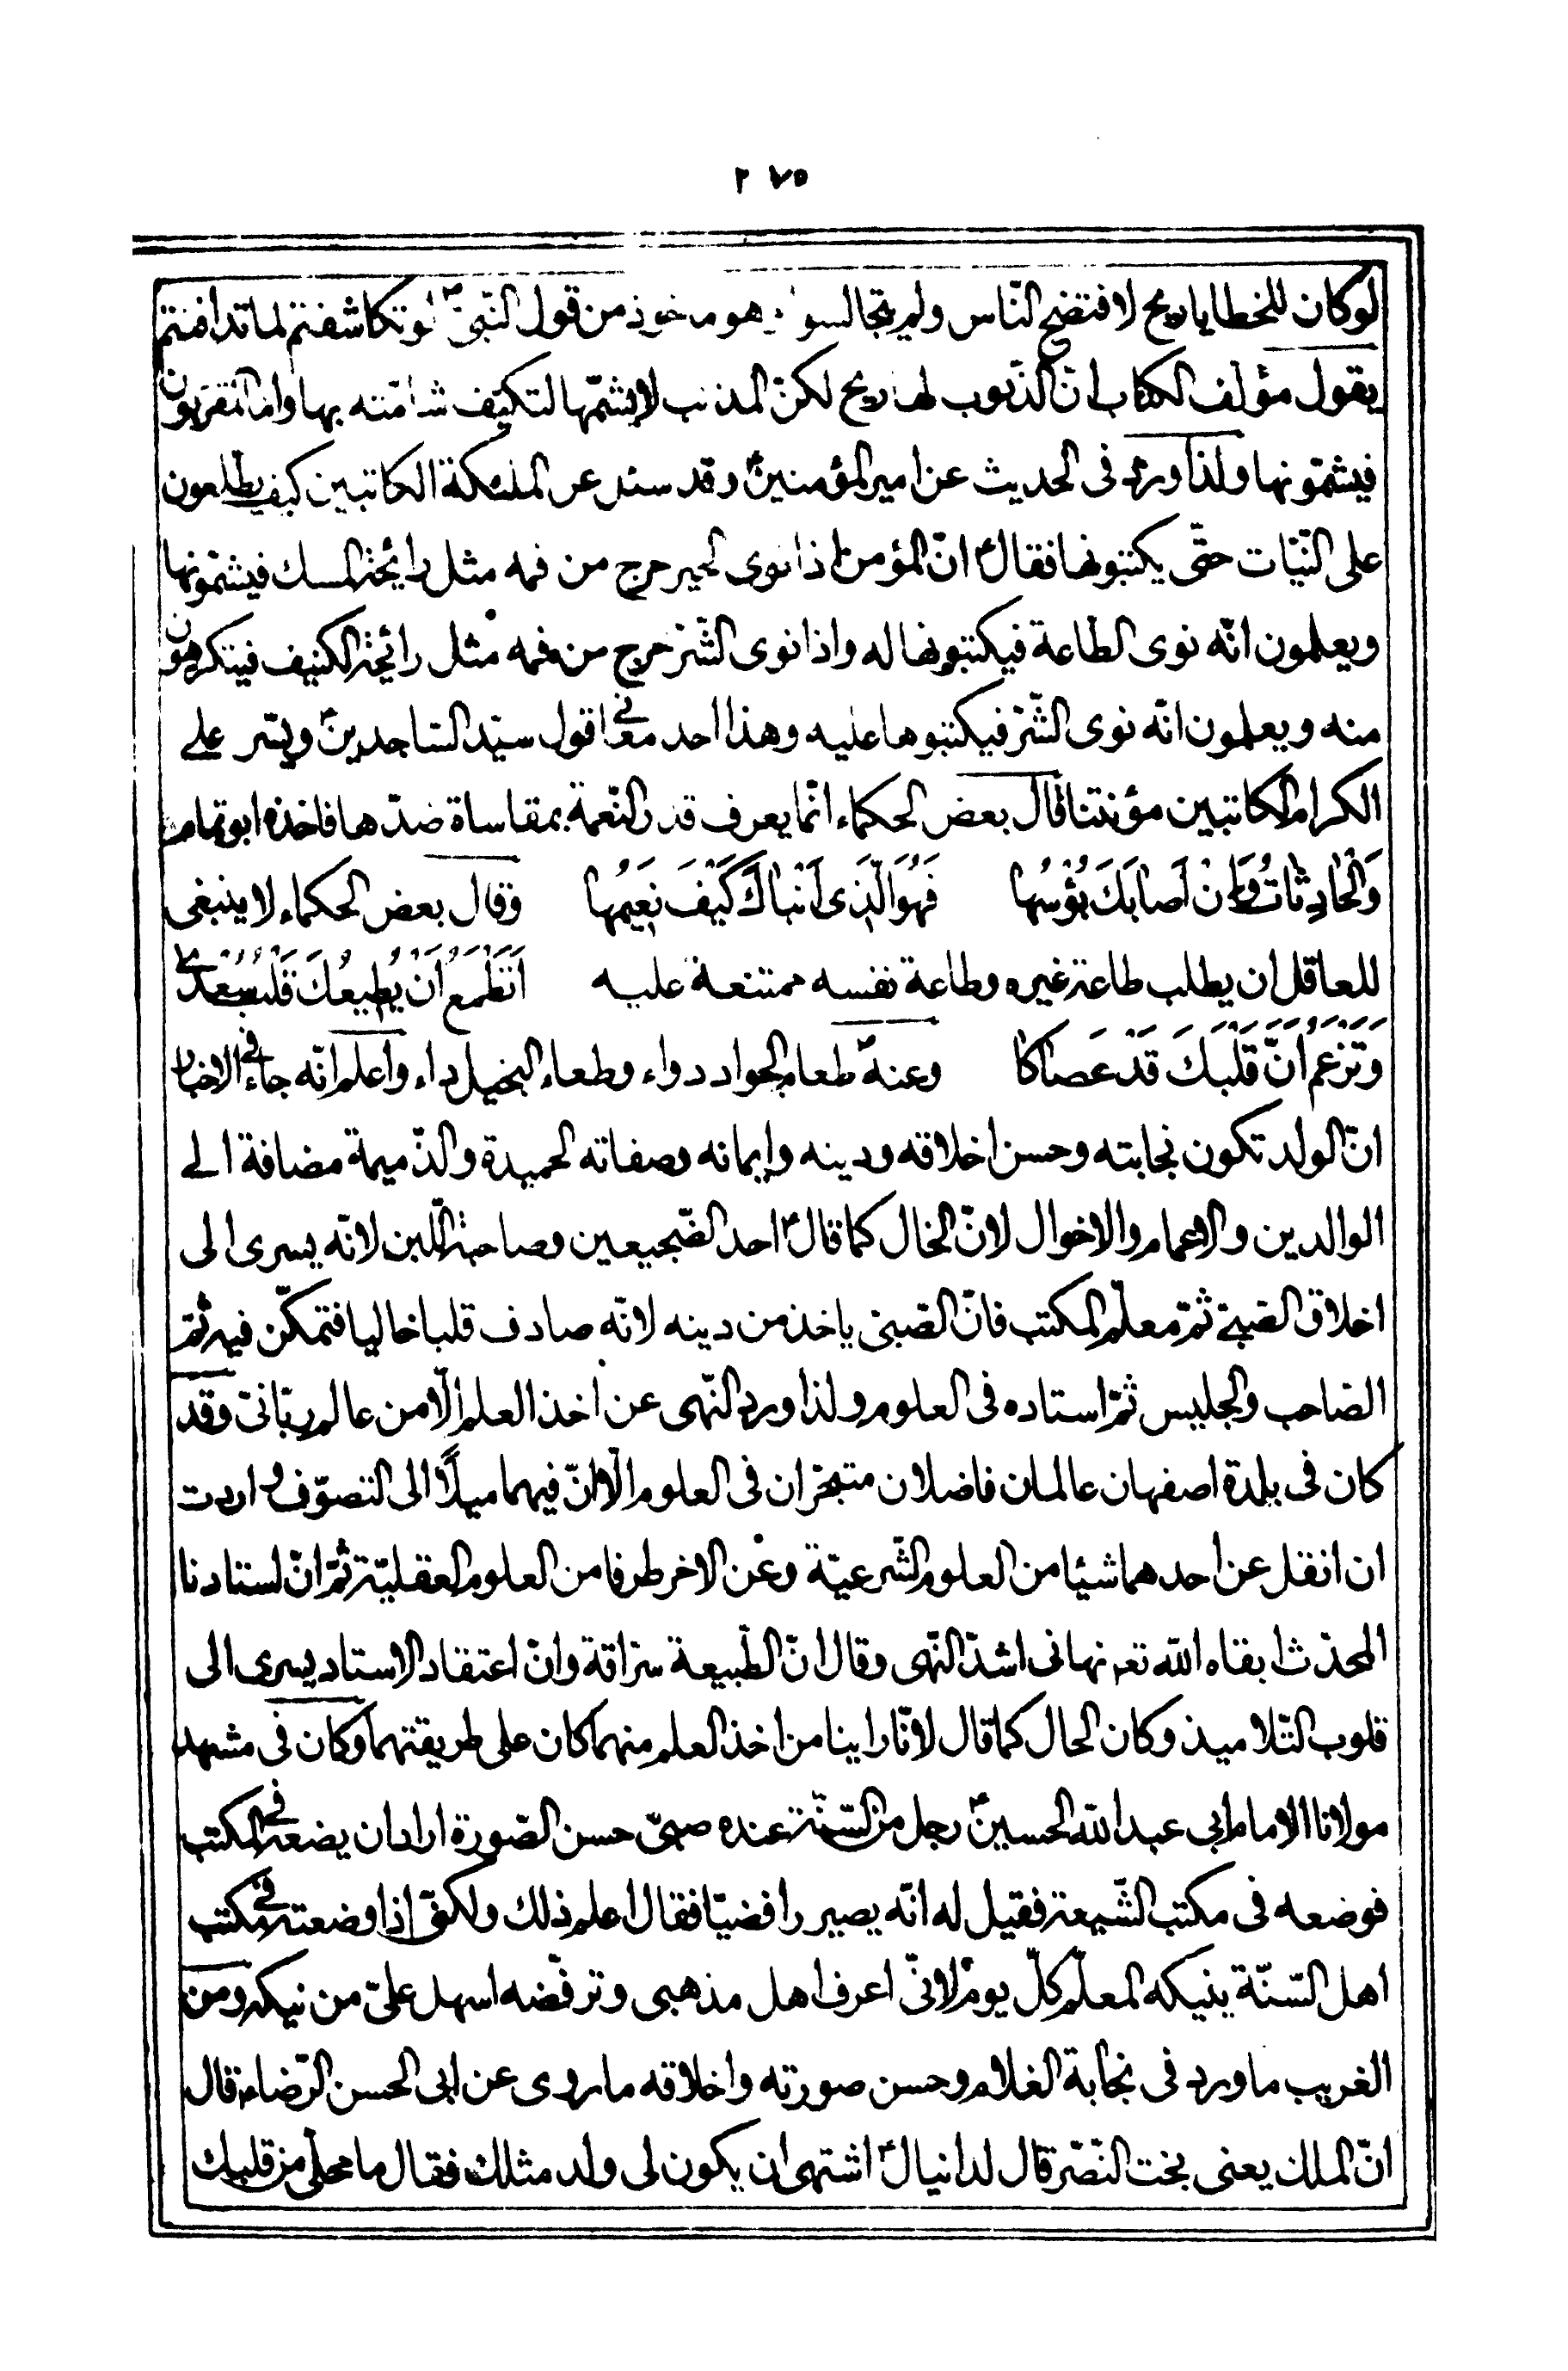 ٢٧٥
لو كان للخطايا ريح لافتضح النّاس ولم يتجالسوا وهو مأخوذ من قول النّبیّ ص لو تكاشفتم لما تدافنتم
يقول مؤلف الكتاب انّ الذّنوب لها ريح لكنّ المذنب لا يشمّها لتكيّف شامّته بها وامّا المقرّبون
فيشمّونها ولذا ورد فی الحديث عن امير المؤمنينؑ وقد سئل عن الملئكة الكاتبين كيف يطّلعون
على النّيّات حتّى يكتبونها فقالؑ انّ المؤمن اذا نوى الخير خرج من فمه مثل رايحة المسك فيشمّونها
ويعلمون انّه نوى الطّاعة فيكتبونها له واذا نوى الشّرّ خرج من فمه مثل رائحة الكنيف فيتكرهون
منه ويعلمون انّه نوى الشّرّ فيكتبوها عليه وهذا احد معانی قول سيّد السّاجدينؑ ويسّر على
الكرام الكاتبين مؤنتنا قال بعض الحكماء انّما يعرف قدر النّعمة بمقاساة ضدّها فاخذه ابوتمام
وَالْحَادِثَاتُ وَاِنْ اَصَابَكَ بُؤْسُها فَهُوَ الَّذی اَنْبَاكَ كَيْفَ نَعِيمُها وقال بعض الحكماء لا ينبغی
للعاقل ان يطلب طاعة غيره وطاعة نفسه ممتنعة عليه اَتَطْمَعُ اَنْ يُطِيعُكَ قَلْبُ سُعْدى
وَتَزْعَمُ اَنَّ قَلْبَكَ قَدْ عَصَاكا وعنهؐ طعام الجواد دواء وطعام البخيل داء واعلم انّه جاء فی الاخبار
انّ الولد تكون نجابته وحسن اخلاقه ودينه وايمانه وصفاته الحميدة والذّميمة مضافة الى
الوالدين والاعمام والاخوال لانّ الخال كما قالؑ احد الضّجيعين وصاحبة اللّبن لانّه يسرى الى
اخلاق الصّبیّ ثمّ معلّم المكتب فانّ الصّبی ياخذ من دينه لانّه صادف قلبا خاليا فتمكّن فيه ثمّ
الصّاحب والجليس ثمّ استاده فی العلوم ولذا ورد النّهى عن اخذ العلم الّا من عالم ربّانیّ وقد
كان فی بلدة اصفهان عالمان فاضلان متبحّران فی العلوم الّا انّ فيهما ميلًا الى التصوّف واردت
ان انقل عن احدهما شيئا من العلوم الشّرعيّة وعن الاخر طرفا من العلوم العقليّة ثمّ انّ استادنا
المحدّث ابقاه اللّٰه تعم نهانی اشدّ النّهى وقال انّ الطّبيعة سرّاقة وانّ اعتقاد الاستاد يسرى الى
قلوب التّلاميذ وكان الحال كما قال لانّا راينا من اخذ العلم منهما كان على طريقتهما وكان فی مشهد
مولانا الامام ابی عبد اللّٰه الحسينؑ رجل من السّنّة عنده صبیّ حسن الصّورة اراد ان يضعه فی المكتب
فوضعه فی مكتب الشّيعة فقيل له انّه يصير رافضيّا فقال اعلم ذلك ولكنّی اذا وضعته فی مكتب
اهل السّنّة ينيكه المعلّم كلّ يوم لانّی اعرف اهل مذهبی وترفّضه اسهل علیّ من نيكه ومن
الغريب ما ورد فی نجابة الغلام وحسن صورته واخلاقه ما روى عن ابی الحسن الرّضاء قال
انّ الملك يعنی بخت النّصّر قال لدانيالؑ اشتهى ان يكون لی ولد مثلك فقال ما محلّی من قلبك